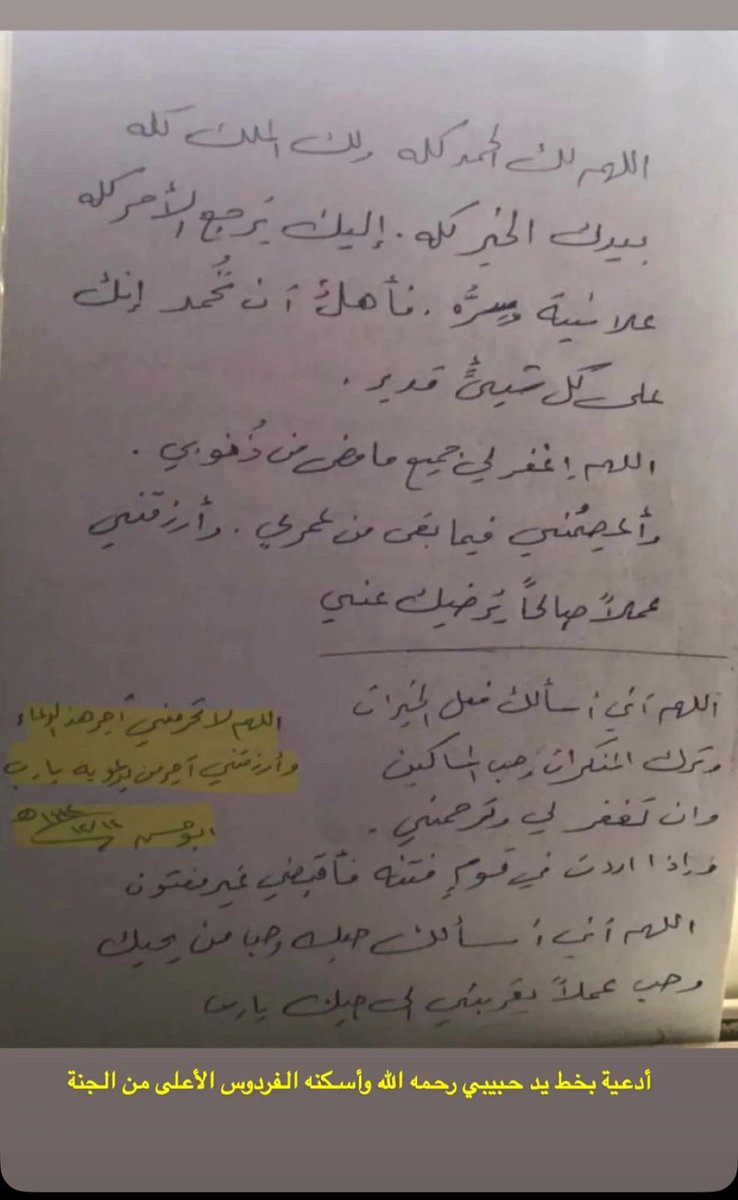 اللهم لك الحمد كله ولك الملك كله
بيدك الخير كله . إليك يَرجع الأمر كله
علانية وسِرُّه . فأهلٌ أن تُحمد إنك
على كل شيئٍ قدير .
اللهم إغفر لي جميع ما مضى من ذُنوبي .
وأعصِمُني فيما بقى من عمري . وأرزقني
عملاً صالحاً يَرضيك عني
اللهم أني أسألك فعل الخيرات
وترك المنكرات وحب المساكين
وان تغفر لي وترحمني .
وإذا اردت في قومٍ فتنه فأقبضي غير مفتون
اللهم أني أسألك حبك وحب من يحبك
وحب عملاً يقربني الى حبك يارب
اللهم لا تحرمني أجر هذ الدعاء
وأرزقني أجر من يدعو به يارب
ابو حسن
أدعية بخط يد حبيبي رحمه الله وأسكنه الفردوس الأعلى من الجنة